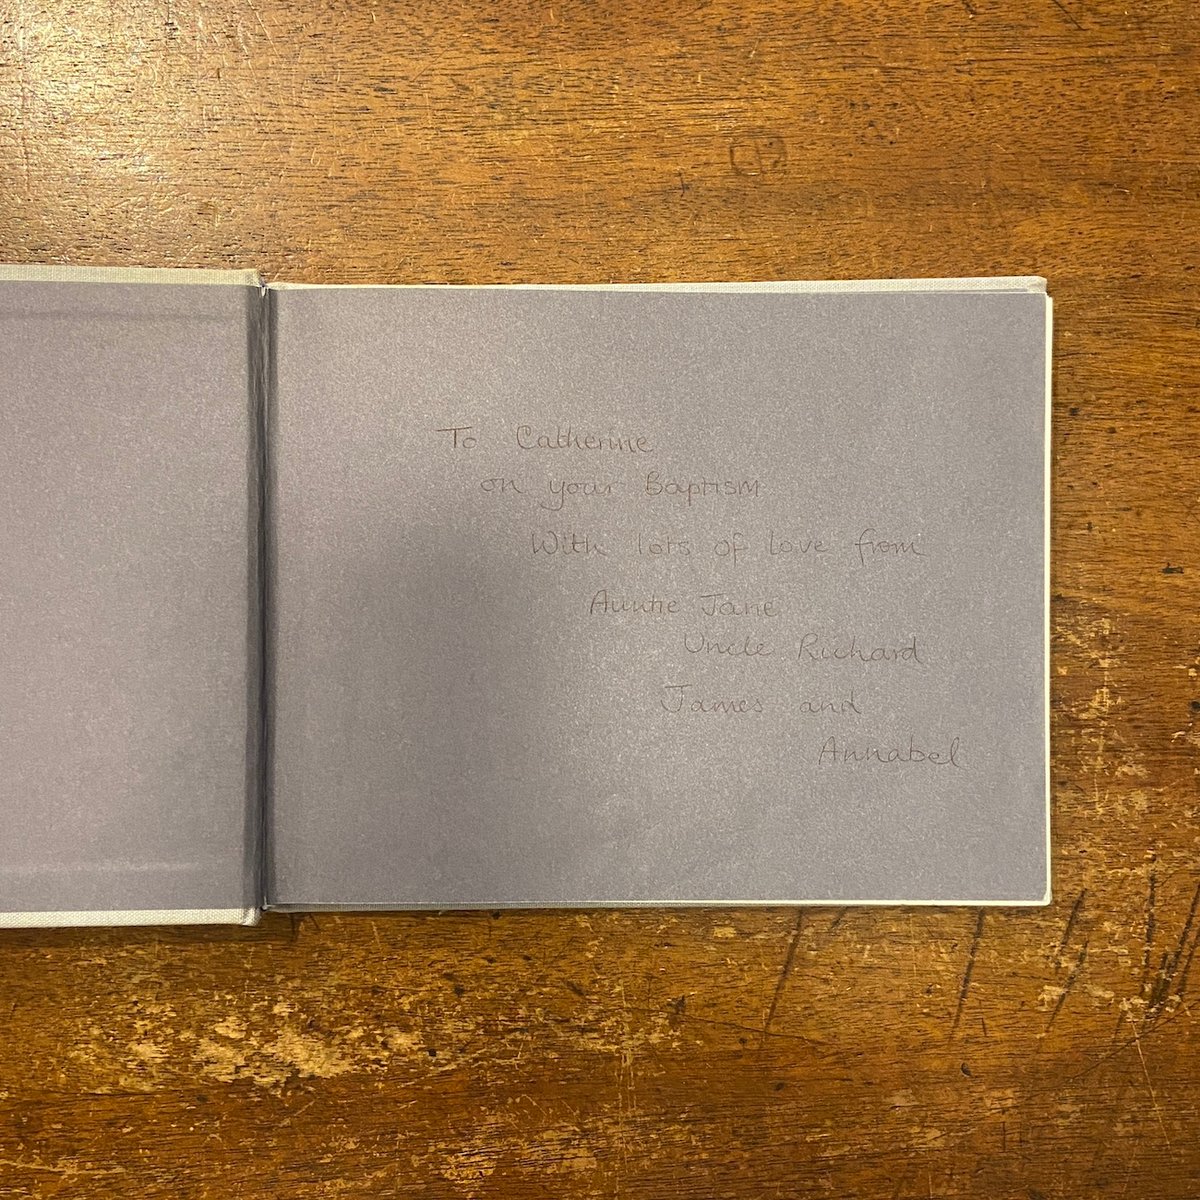 To Catherine
on your Baptism
With lots of love from
Auntie Jane
Uncle Richard
James and
Annabel